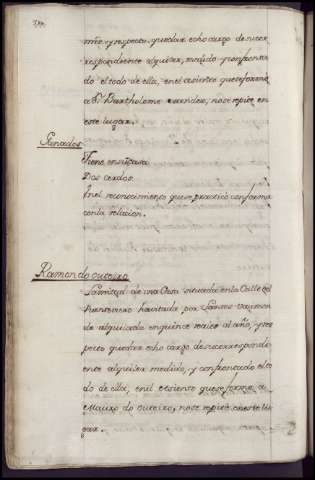 mi, y respecto, quedar echo cargo de su cor
respondiente alquiler, medido y confronta
do el todo de ella, en el asiento que se forma
a Dn. Bartholome , no se repite en
este lugar.
Ganados
Tiene en su casa
Dos cerdos
En el reconocimiento que se practicó conforma
con la relacion.
Ramon do outeiro
La mitad de una Casa situada en la Calle del
havitada por
de alquilada en quince reales al año, y res
pecto quedar echo cargo de su correspondi
ente alquiler medido, y confrontado el to
do de ella, en el asiento que se forma a
Mauro do outeiro, no se repite en este lu
gar.